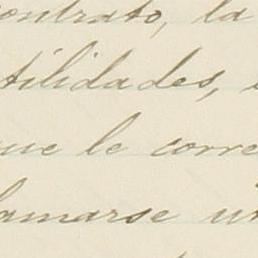 contrato, la
tilidades,
que le corre
lamarse un